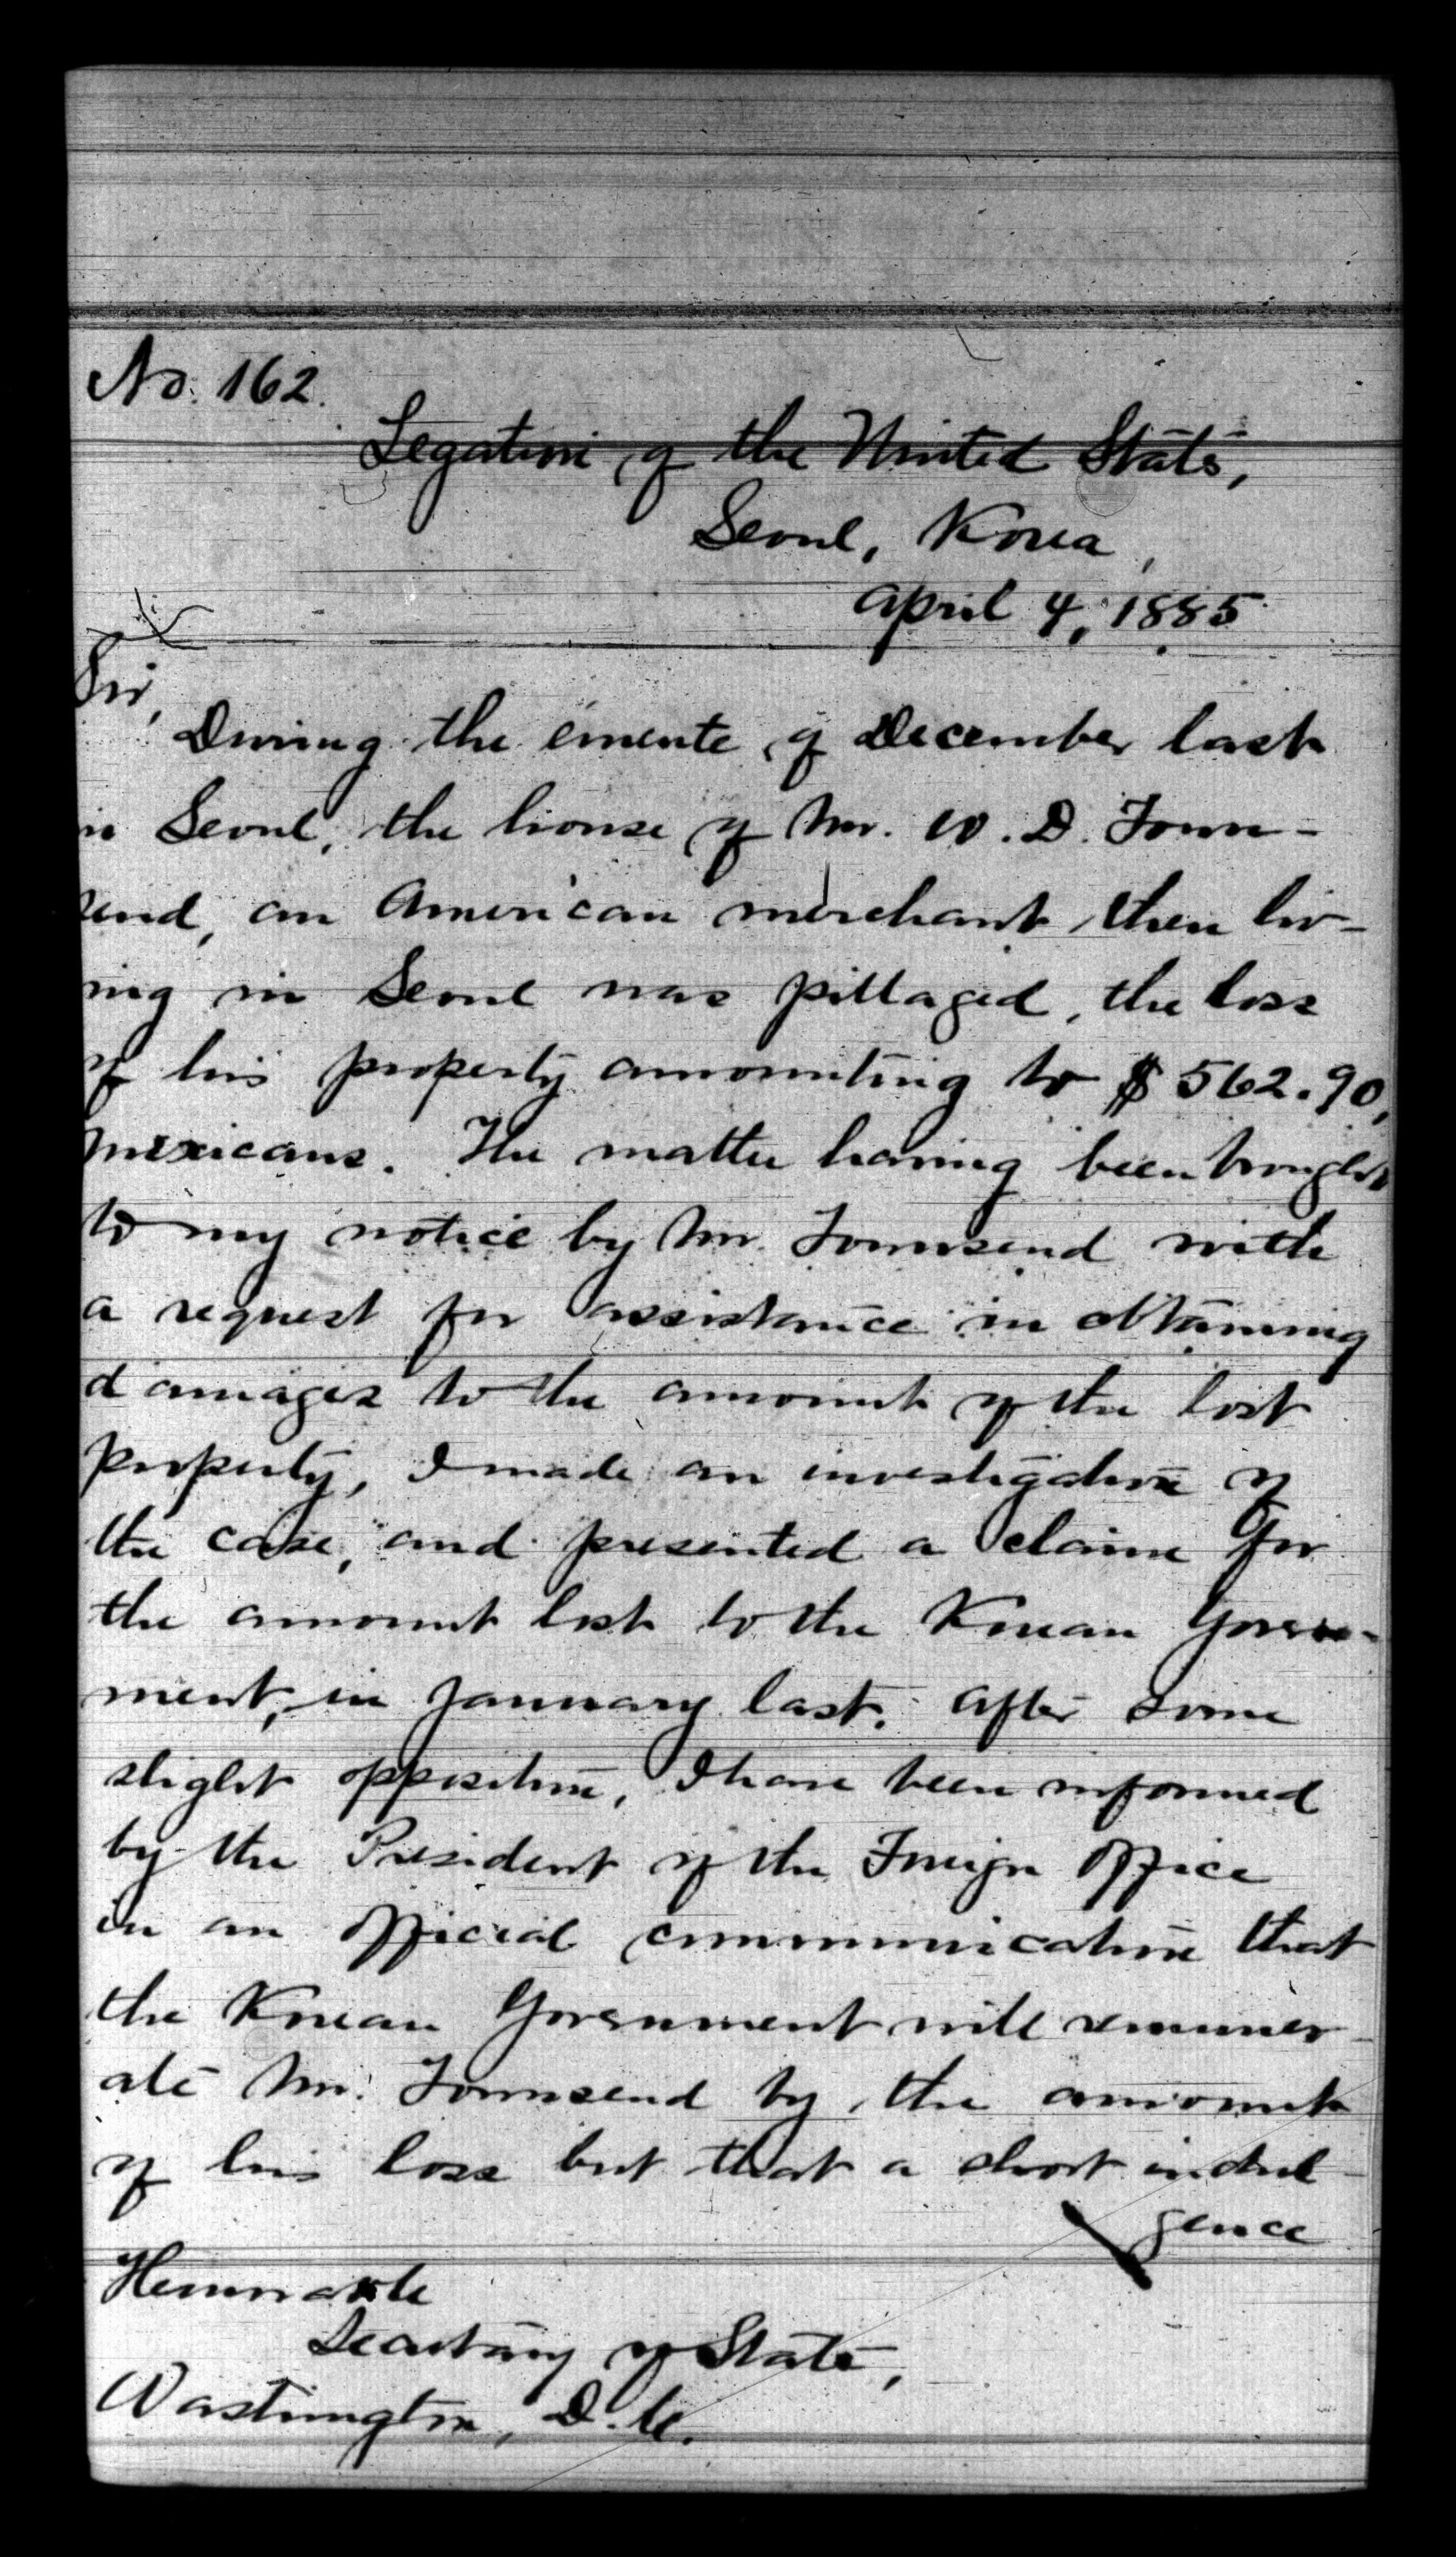 No. 162.
Legation of the United States,
Seoul, Korea,
April 4, 1885.
Sir,
During the émeute of December last
in Seoul, the house of Mr. W. D. Town-
send, an American merchant then liv-
ing in Seoul was pillaged, the loss
of his property amounting to $562.90,
Mexicans. The matter having been brought
to my notice by Mr. Townsend with
a request for assistance in obtaining
damages to the amount of the lost
property, I made an investigation of
the case, and presented a claim for
the amount lost to the Korean Govern-
ment, in January last. After some
slight opposition, I have been informed
by the President of the Foreign Office
in an official communication that
the Korean Government will remuner-
ate Mr. Townsend by the amount
of his loss but that a short indul-
gence
Honorable
Secretary of State,
Washington, D.C.